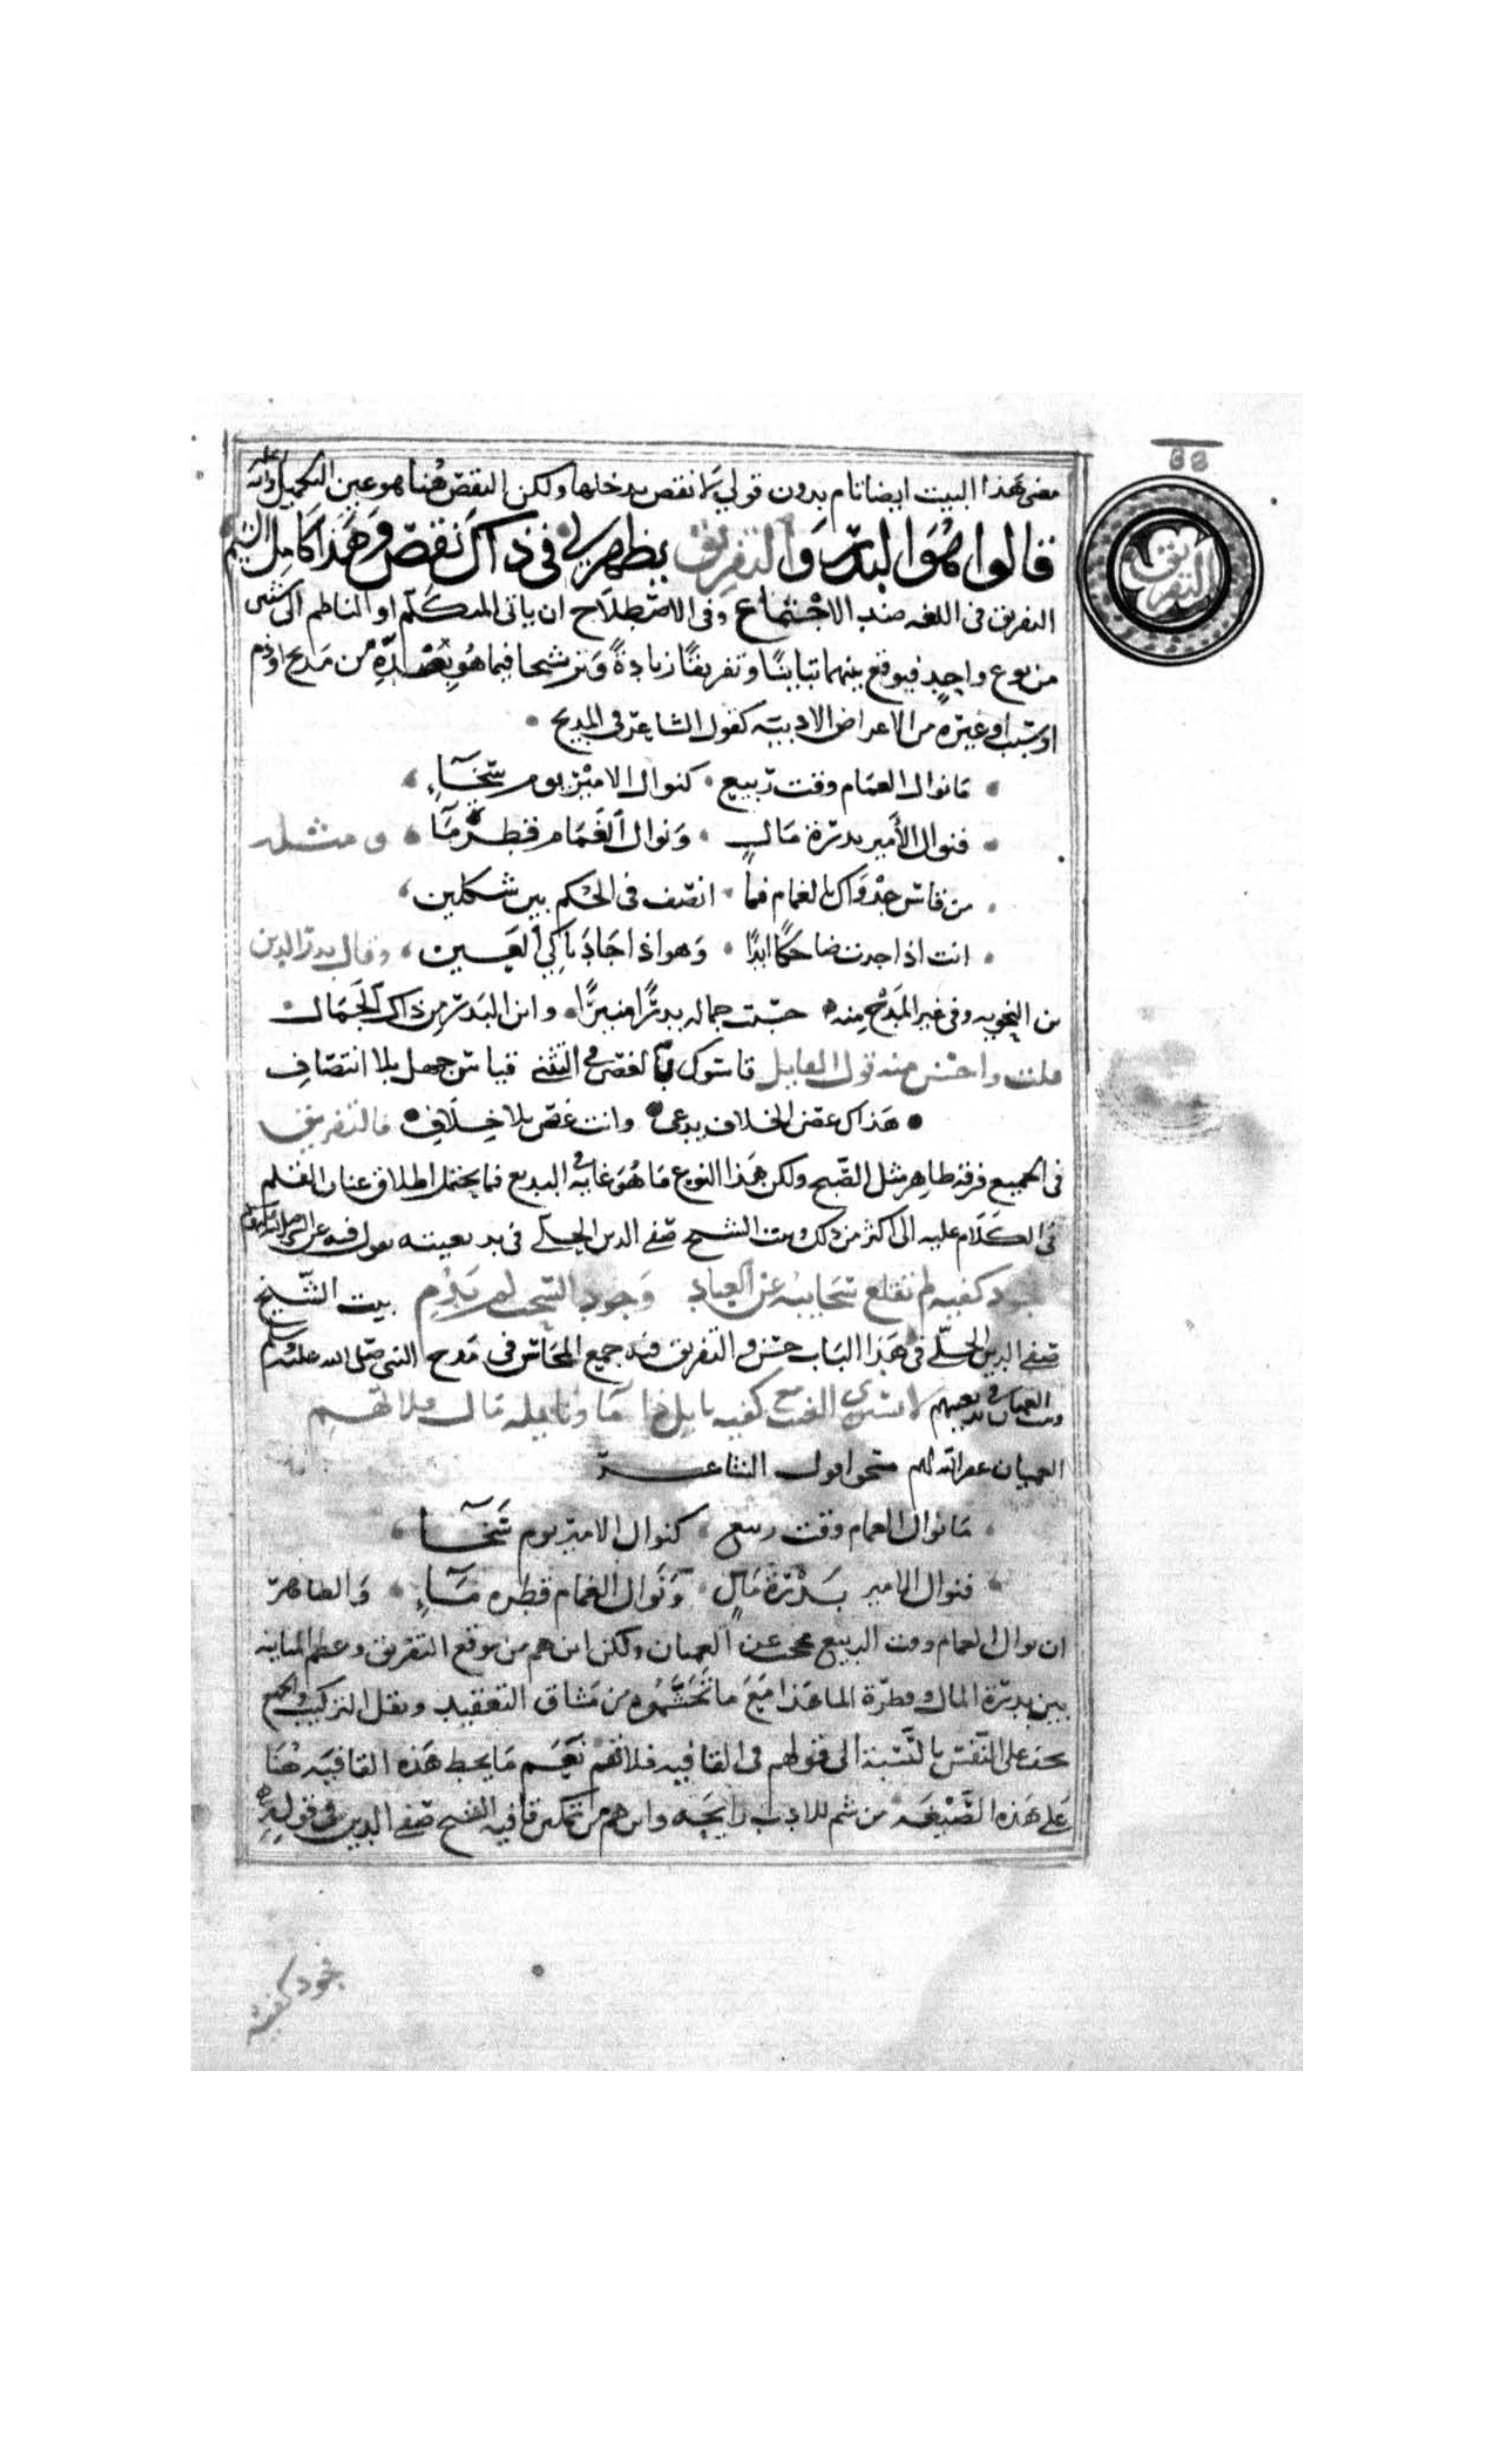 68
التفريق
معنى هذا البيت ايضا تام بدون قولي بلا نقص يدخلها ولكن النقص هنا هو عين التكميل والله اعلم
قالوا هُوَ البدرُ وَالتفرِيق يظهر لي في ذاكَ نَقصٌ وَهَذا كَامِل الشيم
التفريق في اللغه ضد الاجتماع وفي الاصطلاح ان ياتي المتكلم او الناظم الى شيين
من نوع واحِدٍ فيوقع بينهما تبايناً وتفريقاً زيادةً وترشيحا فيما هُو بِصَدَدِه من مَديح اوذم
او نسيب اوغيره من الاعراض الادبيه كقول الشاعر في المديح
مَا نوال الغمَام وقت ربيع كنوال الامير يوم سخَآءِ
فنوال الأمير بدرة مَالٍ وَنوال الغَمَام قطرةُ مَآ ومثله
من قاس جدوَاك بالغمام فما انصف في الحكم بين شكلين
انت اذا جدت ضاحكًا ابدًا وَهو اذا جَادَ باكي العَين وقال بدر الدين
بن النحويه وفي غير المدح منه حسبت جماله بدرًا منيرًا واين البَدر من ذاك الجَمال
قلت واحسن منه قول القايل قاسوك بالغصن في التثني قياس جهل بلا انتصافِ
هَذاك غصن الخلاف يدعى وانت غصن بلا خِلَافِ فالتفريق
في الجميع فرقه ظاهر مثل الصبح ولكن هَذا النوع مَا هُوَ غايه في البديع فما يحتمل اطلاق عنان القلم
في الكَلَام عليه الى اكثر من ذلك وبيت الشيخ صفي الدين الحلي في بديعيته يقول فيه عن النبي
فجود كفيه لم تقلع سَحَايبه عَن العِبادِ وَجود السحب لم يَدُمِ بيت الشيخ
صفي الدين الحلّي في هَذا البَاب حسن والتفريق فيه جميع المحَاسن في مَدح النبي صلى الله عليه وسلم
وبيت العميان في بديعيتهم لا يستوي الغيث مع كفيه نايل ذا مَا ونايله مَال فلا تهم
العميان غفر الله لهم نحوا قول الشاعر
مَا نوال الغمام وقت ربيع كنوال الامير يوم سَخَآ
فنوال الامير بَدْرَة مَالٍ وَنَوال الغمام قطره مَآءِ وَالظاهر
ان نوال الغمام وقت الربيع محجب عن العميان ولكن اين هم من موقع التفريق وعظم المباينه
بين بدرة المال وقطرة الما هَذا مَعَ مَا تَجَشَّمُوه من مَشاق التعقيد وثقل التركيب والجميع
يخف على النفس بالنسبة الى قولهم في القافيه فلا تهم نَعَم مَا يحط هَذه القافيَه هُنَا
عَلى هَذه الصِّيغَه من شم للادب رايحَه واين هم من تمكين قافيه الشيخ صفي الدين في قوله
فجود كفيه